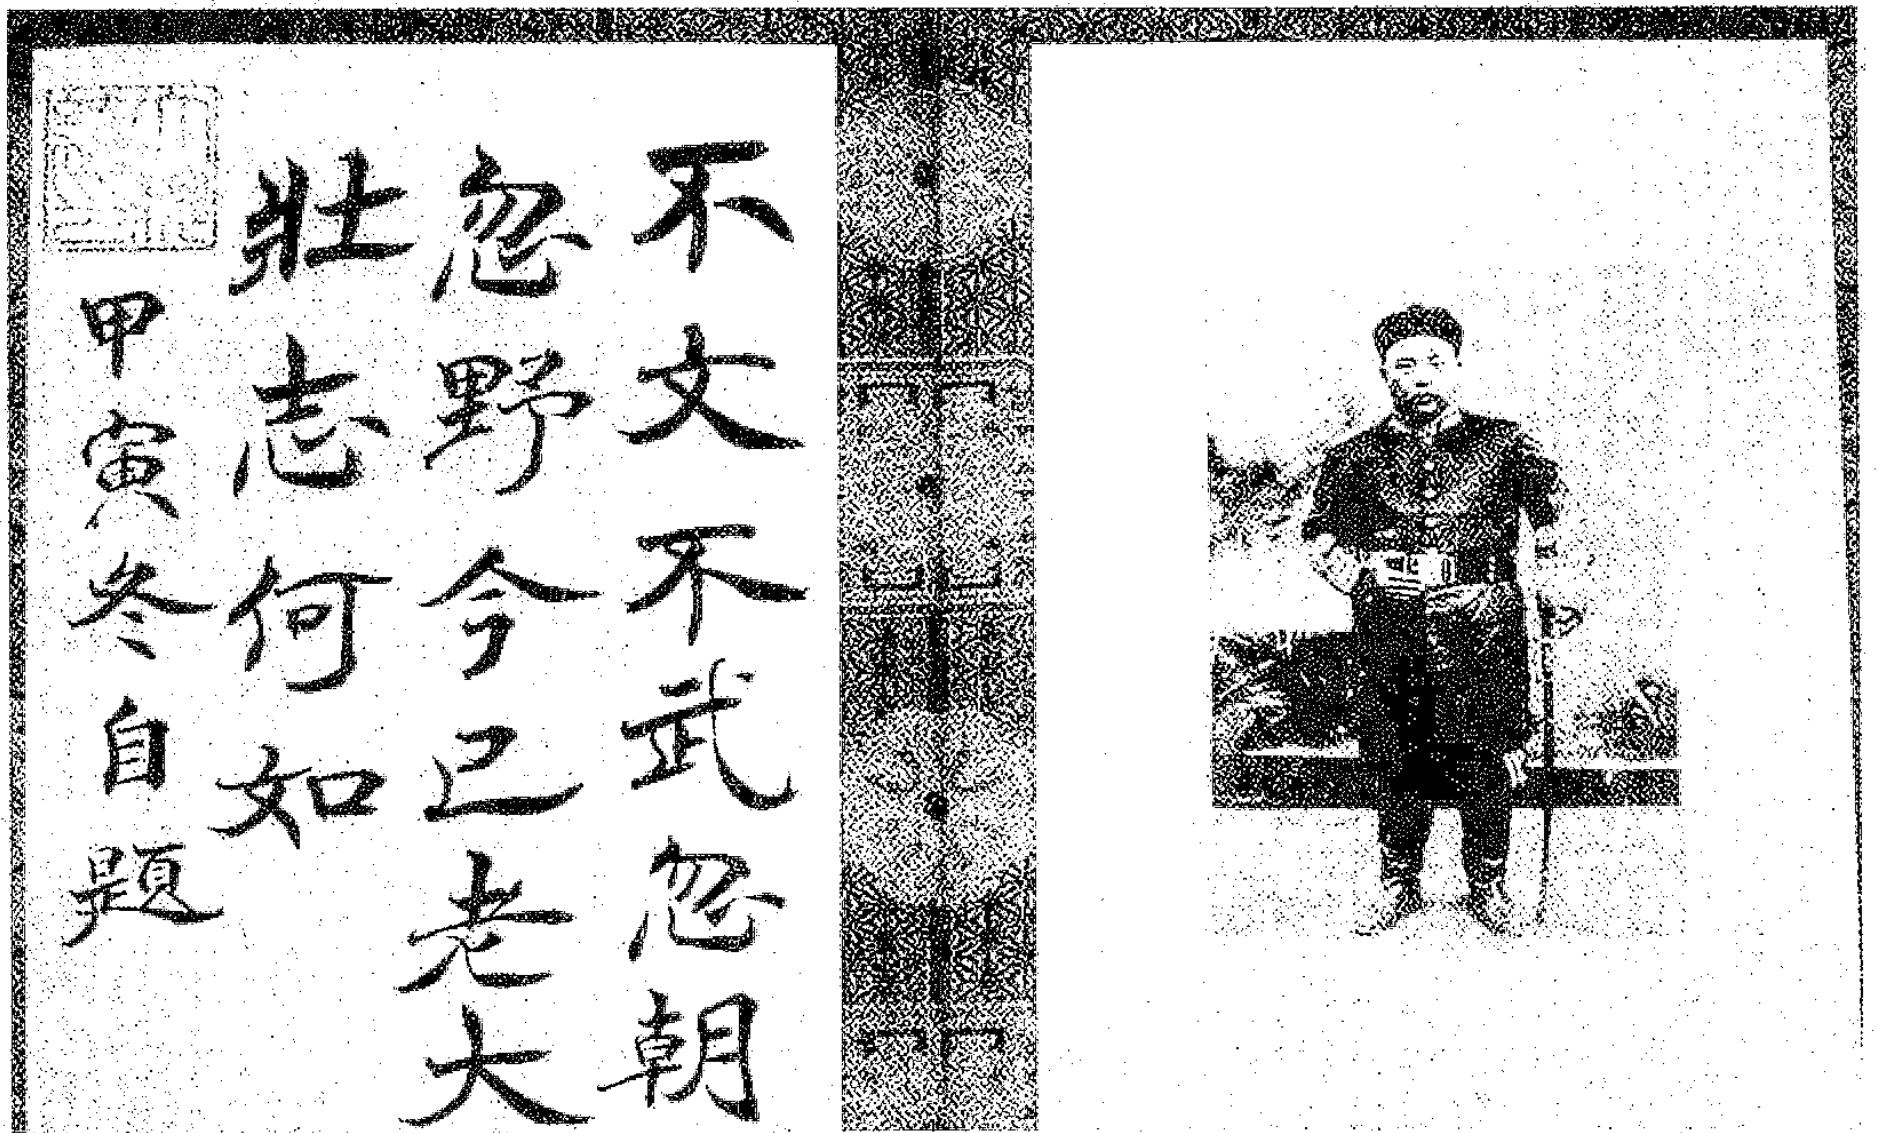 不文不武忽朝
忽野今已老大
壯志何如
甲寅冬自題